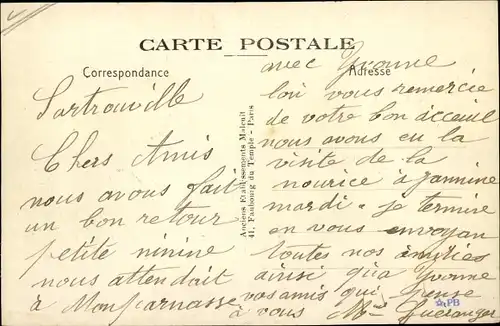 CARTE POSTALE
Correspondance
Adresse
Sartrouville
Chers Amis
nous avons fait
un bon retour
petite ninine
nous attendait
à Monparnasse
Anciens Etablissements Malcuit
41, Faubourg du Temple - Paris
avec Yvonne
vous remercie
de votre bon acceuil
nous avons eu la
visite de la
nourice à jannine
mardi - je termine
en vous envoyan
toutes nos amities
ainsi qu'a Yvonne
vos amis qui pense
à vous Mme
PB